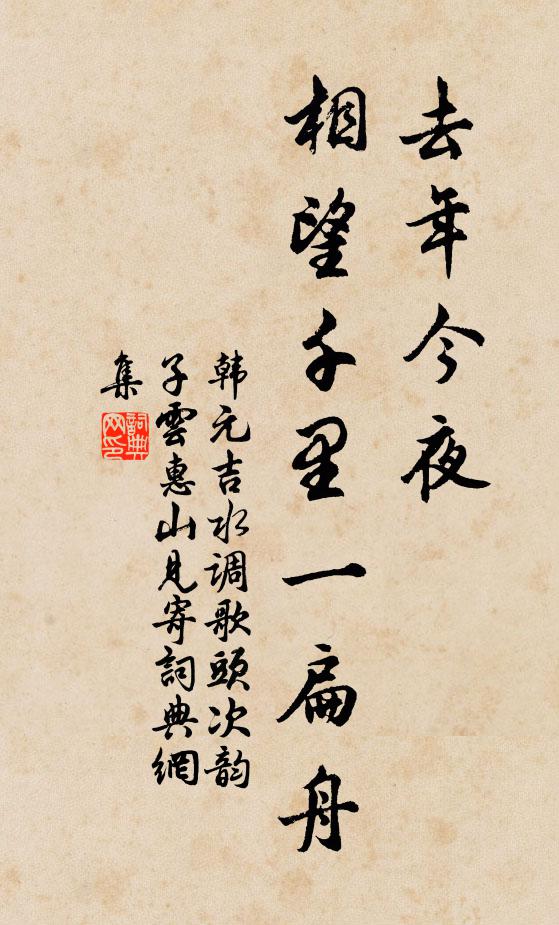 去年今夜
相望千里一扁舟
韩元吉水调歌頭次韵
子雲惠山見寄詞典網
集
詞典
网印